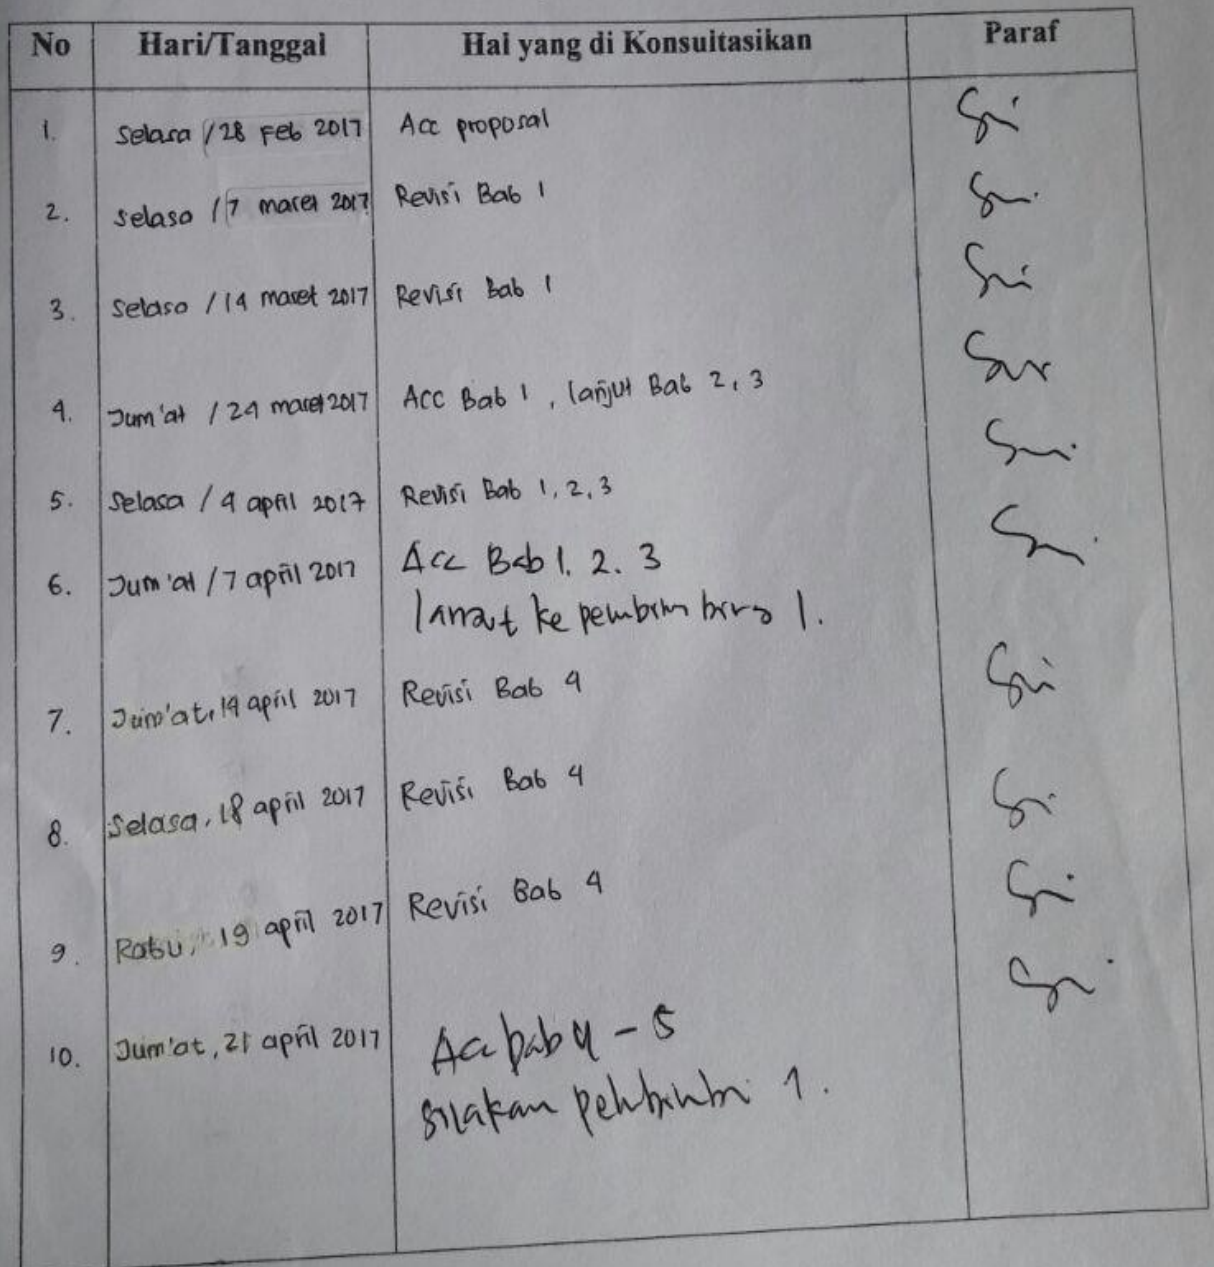 No Hari/Tanggal Hal yang di Konsultasikan Paraf
1. Selasa / 28 Feb 2017 Acc proposal
2. Selasa / 7 maret 2017 Revisi Bab 1
3. Selasa / 14 maret 2017 Revisi Bab 1
4. Jum'at / 24 maret 2017 Acc Bab 1, lanjut Bab 2, 3
5. Selasa / 4 april 2017 Revisi Bab 1, 2, 3
6. Jum'at / 7 april 2017 Acc Bab 1. 2. 3
lanjut ke pembimbing 1.
7. Jum'at, 14 april 2017 Revisi Bab 4
8. Selasa, 18 april 2017 Revisi Bab 4
9. Rabu, 19 april 2017 Revisi Bab 4
10. Jum'at, 21 april 2017 Acc bab 4 - 5
silakan 1.